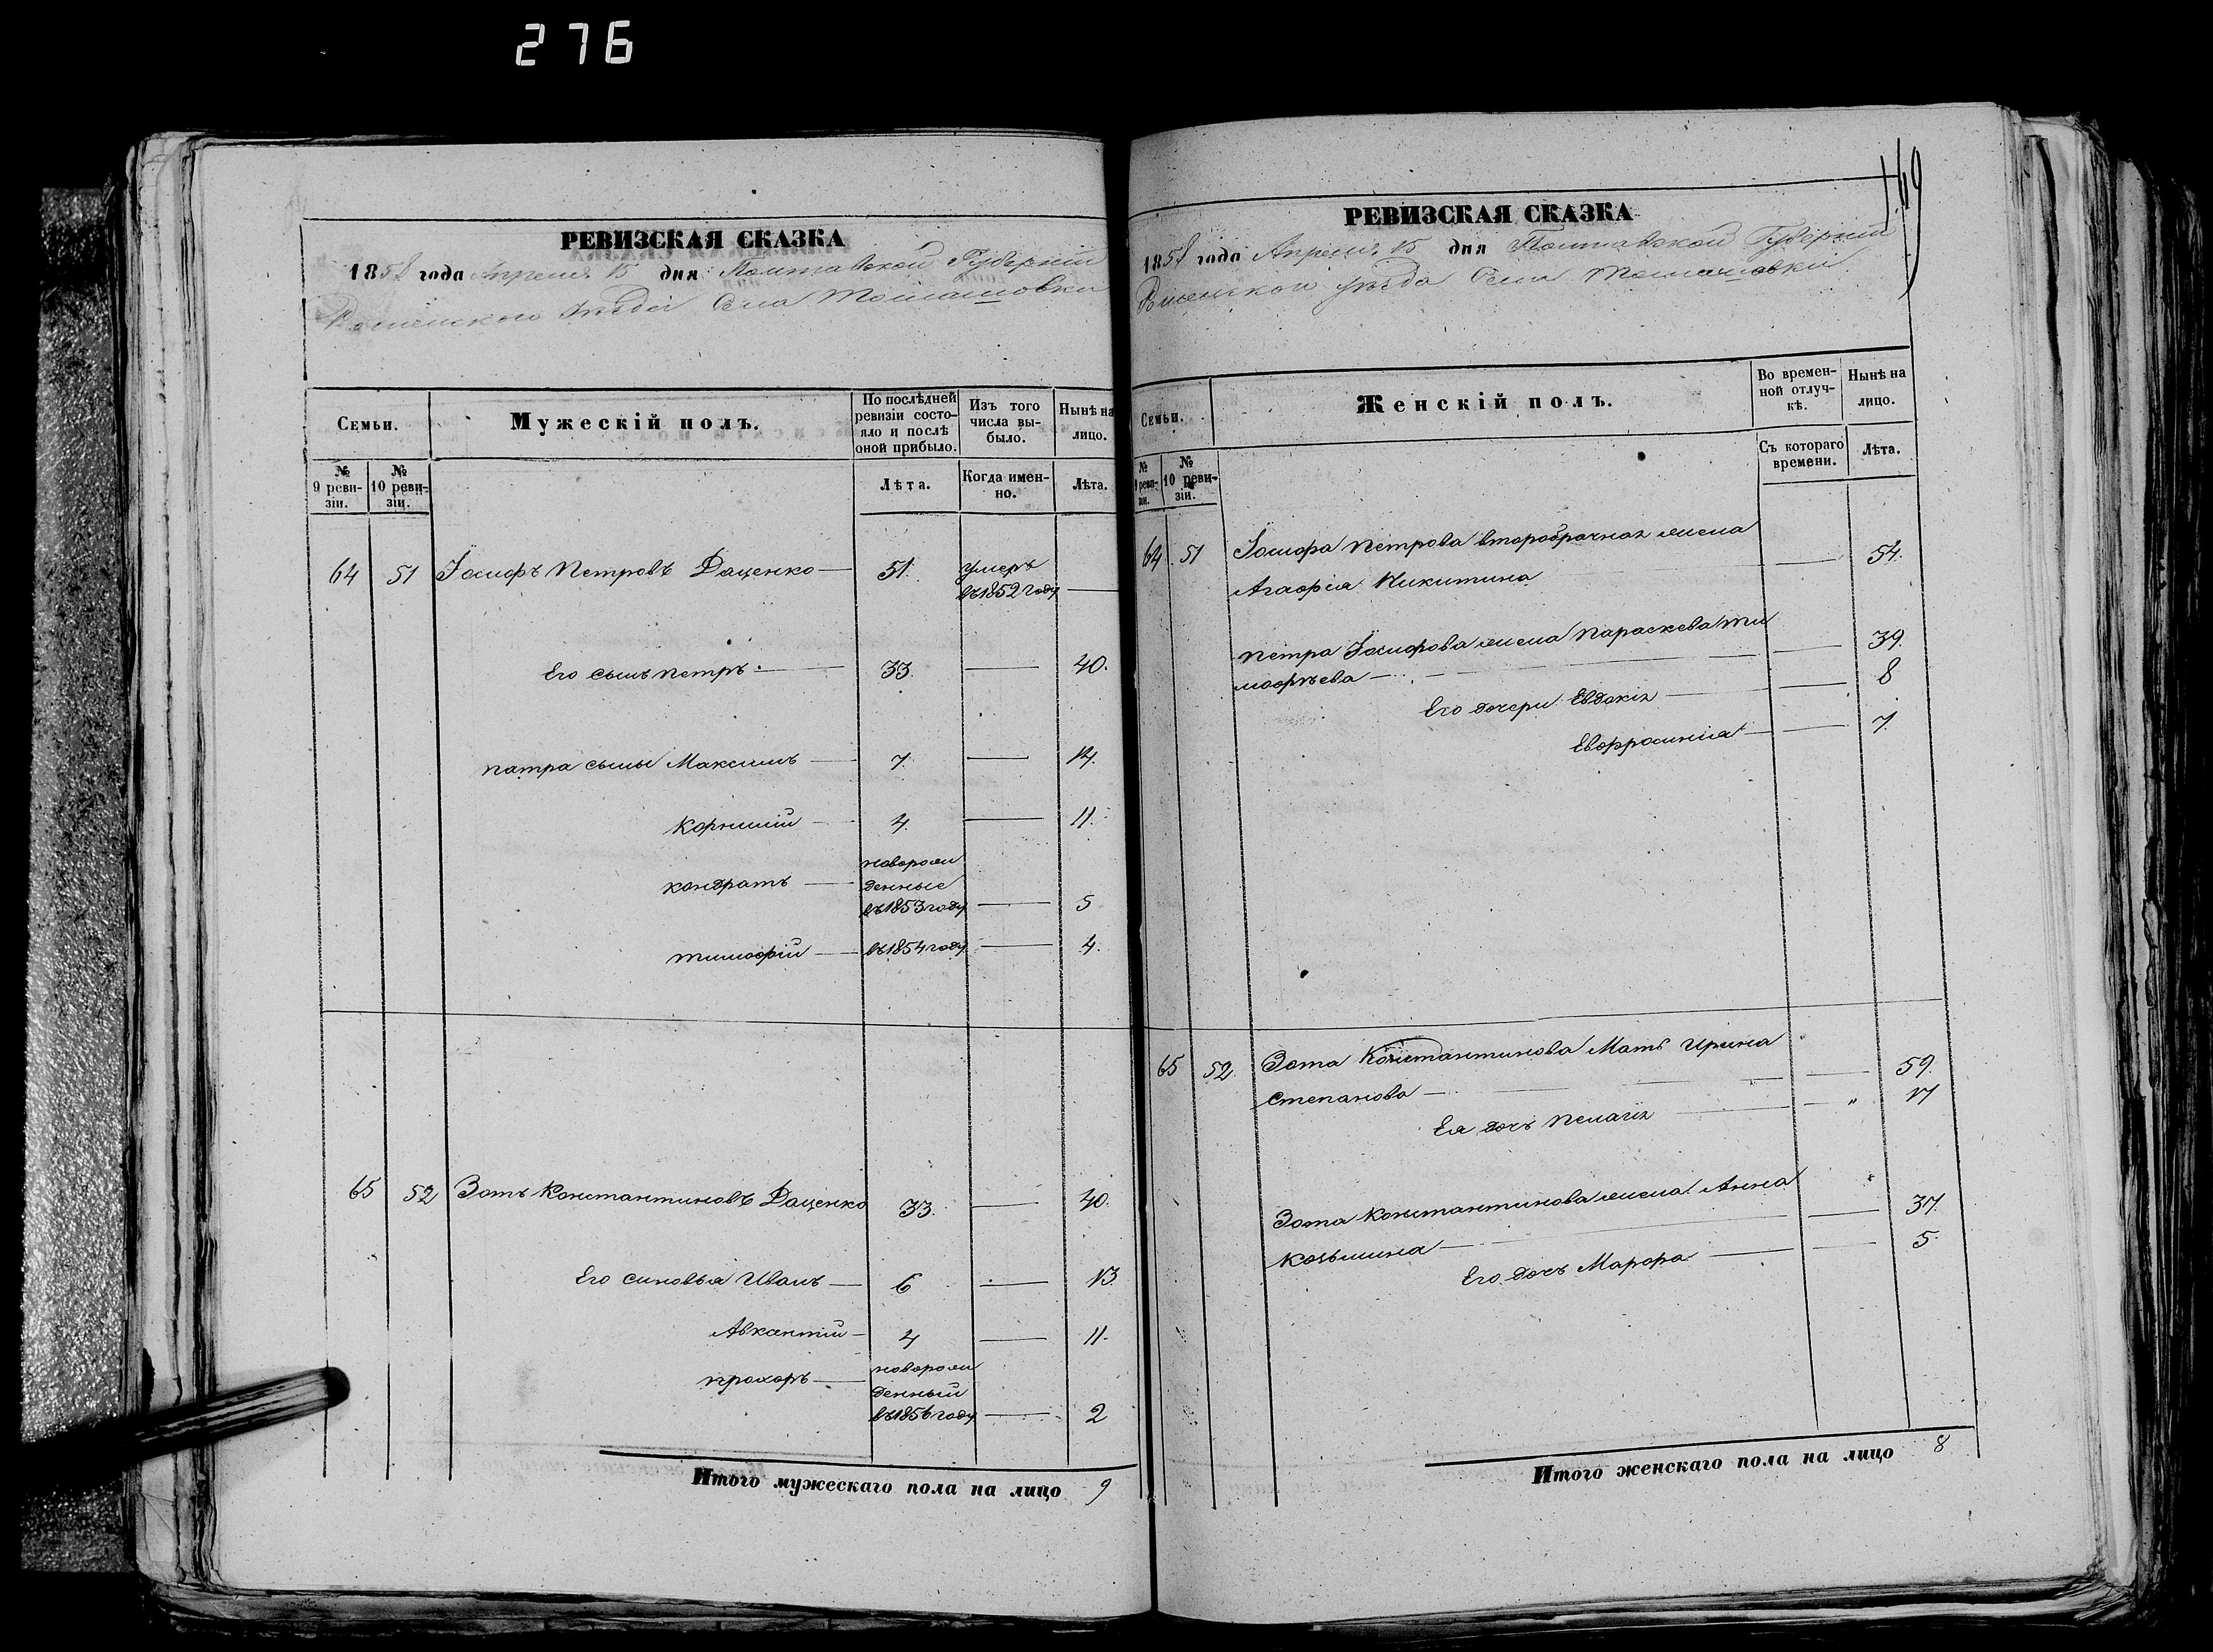 276
169
РЕВИЗСКАЯ СКАЗКА
1858 года Апреля 15 дня Полтавской Губерніи
Роменского уезда Села Томашовки
Семьи.
Мужескій полъ.
По послѣдней ревизіи состояло и послѣ оной прибыло.
Изъ того числа выбыло.
Нынѣ на лицо.
№ 9 ревизіи.
№ 10 ревизіи.
Лѣта.
Когда именно.
Лѣта.
64 51 Іосифъ Петровъ Даценко 51. умеръ
въ 1852 году
Его сынъ петръ 33. 40.
патра сыны Максимъ 7. 14.
корнилій 4. 11.
кондратъ
новорож
денные
въ 1853 году 5
тимофій въ 1854 году 4.
65 52 Зотъ Константиновъ Даценко 33. 40.
Его синовья Иванъ 6 13.
Авксентій 4 11.
прохоръ
новорож
денный
въ 1856 году 2
Итого мужескаго пола на лицо 9
РЕВИЗСКАЯ СКАЗКА
1858 года Апреля 15 дня Полтавской Губерніи
Роменской уезда Села Томашовки
Семьи.
Женскій полъ.
Во временной отлучкѣ.
Нынѣ на лицо.
№ 9 ревизіи.
№ 10 ревизіи.
Съ котораго времени.
Лѣта.
64 51 Іосифа Петрова второбрачная жена
Агафія Никитина 54.
петра Іосифова жена Параскева ти
мофѣева 39.
Его дочери Евдокія 8
Евфросинія 7.
65 52 Зота Константинова Мать Ирина
Степанова 59.
Ея дочь Пелагія " 17
Зота Константинова жена Анна
Козьмина 37.
Его дочь Марфа 5.
Итого женскаго пола на лицо 8